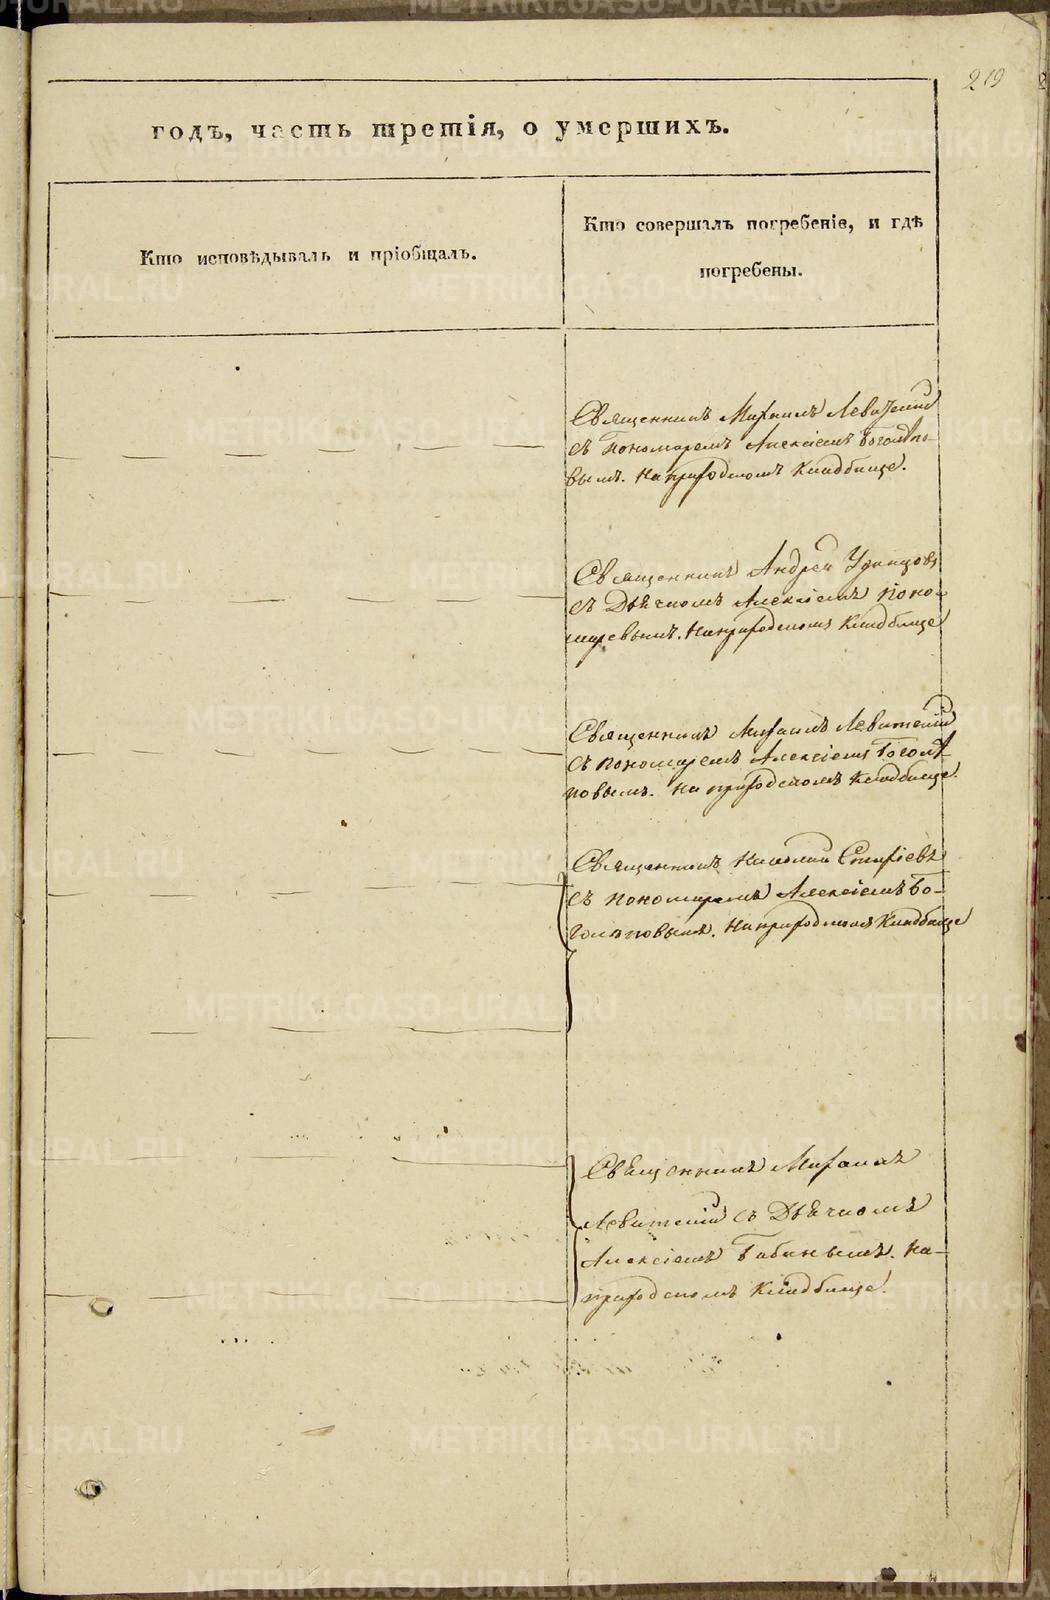 219
годъ, часть третія, о умершихъ.
Кто исповѣдывалъ и пріобщалъ.
Кто совершалъ погребеніе, и гдѣ
погребены.
Священникъ Михаилъ Левитскій
съ Пономаремъ Алексіемъ Боголѣпо-
вымъ. На приходскомъ Кладбище.
Священникъ Андрей Удинцовъ
съ Дьячкомъ Алексіемъ Поно-
маревымъ. На приходскомъ Кладбище
Священникъ Михаилъ Левитскій
съ пономаремъ Алексіемъ Боголѣ-
повымъ. На приходскомъ Кладбище.
Священникъ Николай
съ пономаремъ Алексіемъ Бо-
голѣповымъ. На приходскомъ Кладбище
Священникъ Михаилъ
Левитскій съ Дьячкомъ
Алексіемъ Бабинымъ. На-
приходскомъ Кладбище.
METRIKI.GASO-URAL.RU